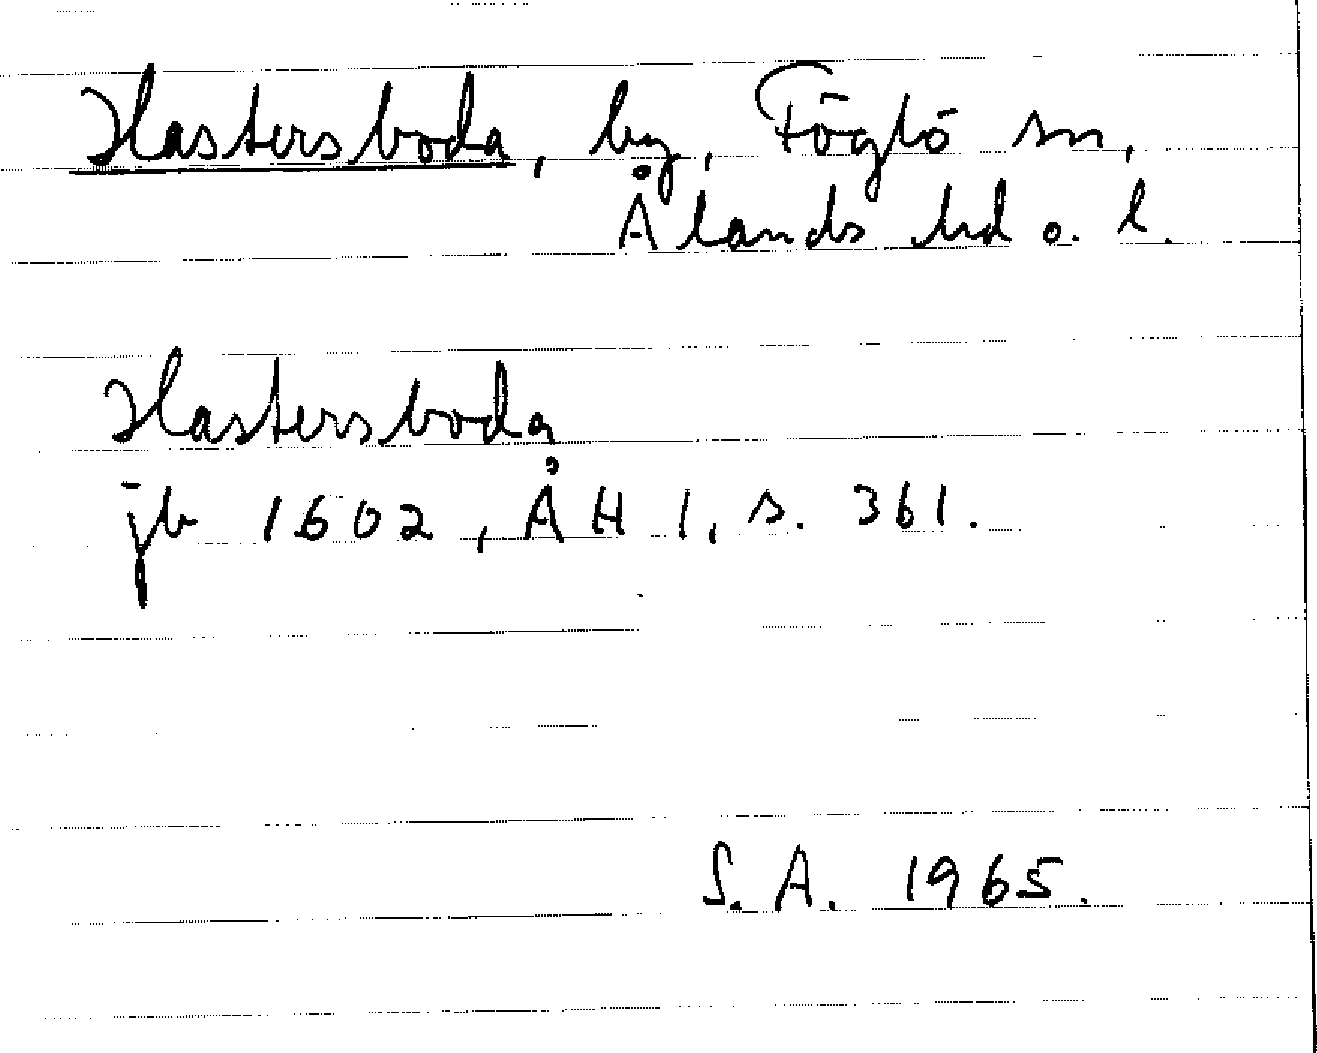 Hastersboda, by, Föglö sn,
Ålands hd o. l.
Hastersboda
jb 1602, ÅH 1, s. 361.
S. A. 1965.